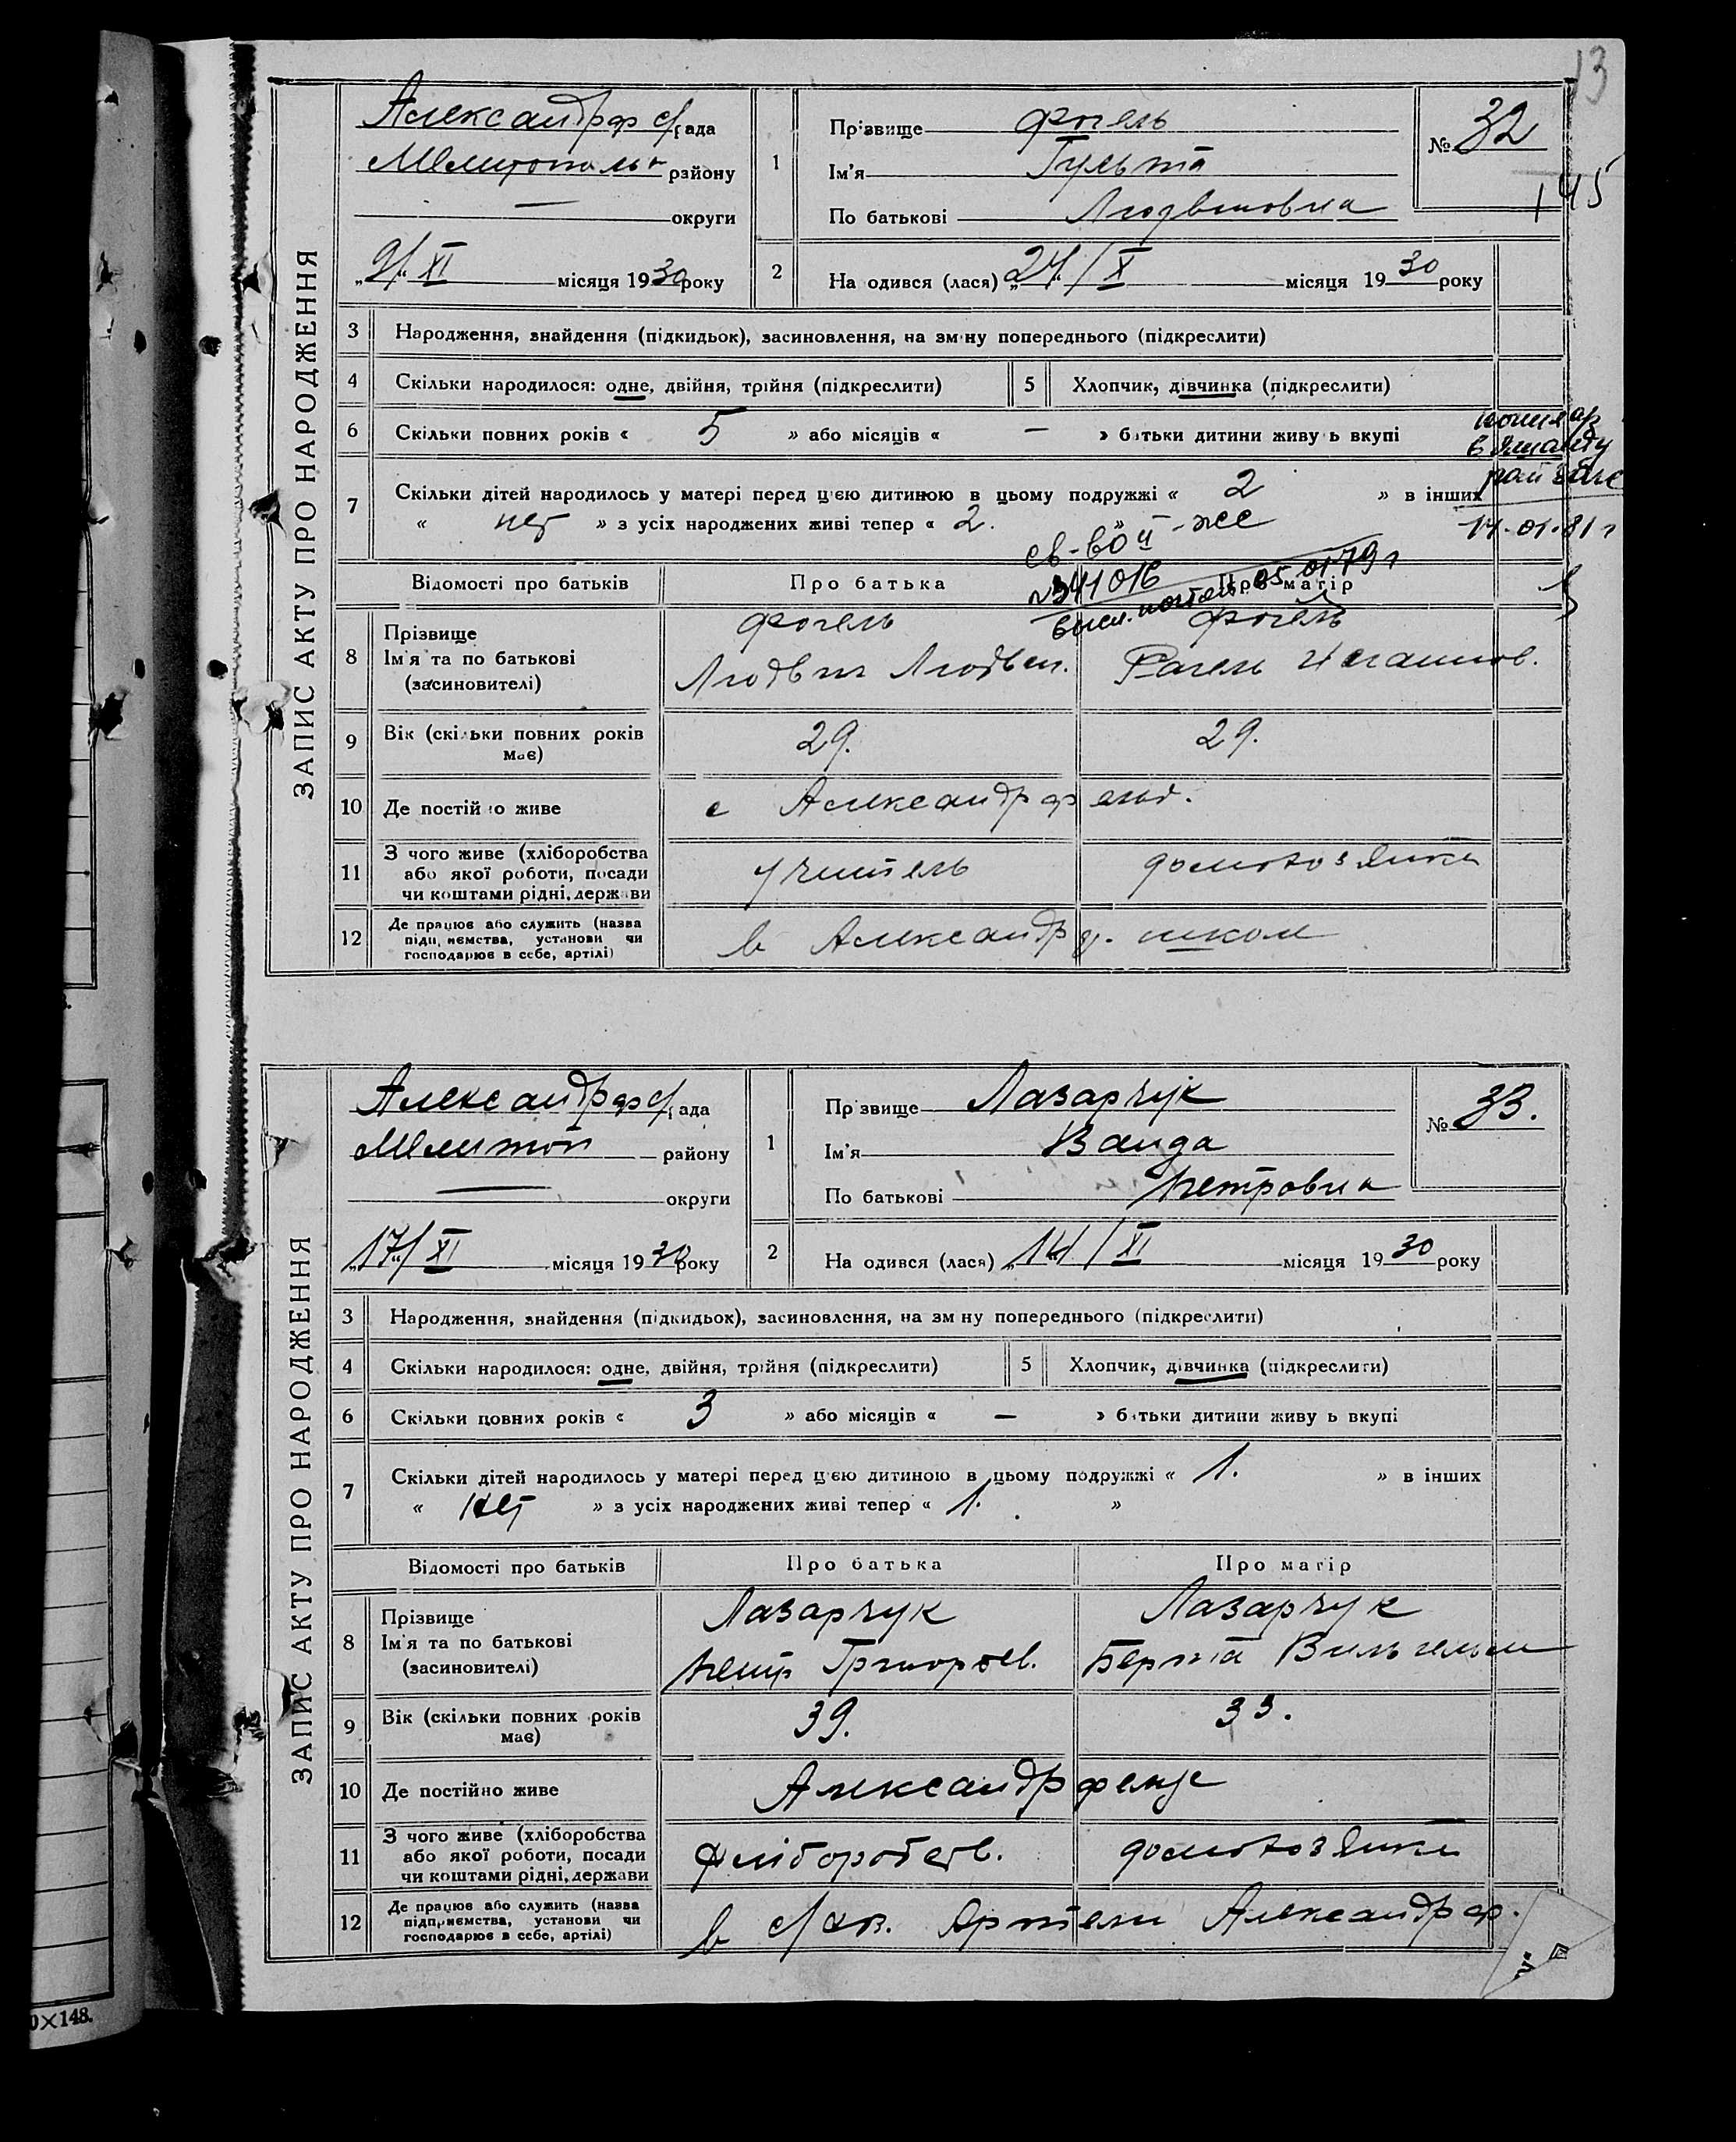 13
ЗАПИС АКТУ ПРО НАРОДЖЕННЯ
Александрф с/рада
Мелитополь району
— округи
"9/" XI місяця 1930 року
1 Прізвище Фогель
Ім'я Гульта
По батькові Людвиговна
№ 32
145
2 На одився (лася) "24"/X місяця 1930 року
3 Народження, знайдення (підкидьок), засиновлення, на зм ну попереднього (підкреслити)
4 Скільки народилося: одне, двійня, трійня (підкреслити)
5 Хлопчик, дівчинка (підкреслити)
6 Скільки повних років « 5 » або місяців « — » батьки дитини живу ь вкупі
7 Скільки дітей народилось у матері перед цією дитиною в цьому подружжі « 2 » в інших
« нет » з усіх народжених живі тепер « 2. »
14.01.81 г
св-во II-жс
№341016
05.01.79 г
Відомості про батьків Про батька Про матір
8 Прізвище
Ім'я та по батькові
(засиновителі)
Фогель
Людвиг Людвиг.
Фогель
9 Вік (скільки повних років
має)
29. 29.
10 Де постійно живе с Александрфельд.
11 З чого живе (хліборобства
або якої роботи, посади
чи коштами рідні, держави
учитель домохозяйка
12 Де працює або служить (назва
підприємства, установи чи
господарює в себе, артілі)
в Александрф. школе
ЗАПИС АКТУ ПРО НАРОДЖЕННЯ
Александрф с/рада
Мелитоп району
— округи
"17/" XI місяця 1930 року
1 Пр звище Лазарчук
Ім'я Ванда
По батькові Петровна
№ 33.
2 На одився (лася) "14"/XI місяця 1930 року
3 Народження, знайдення (підкидьох), засиновлення, на зм ну попереднього (підкреслити)
4 Скільки народилося: одне, двійня, трійня (підкреслити)
5 Хлопчик, дівчинка (підкреслити)
6 Скільки повних років « 3 » або місяців « — » батьки дитини живу ь вкупі
7 Скільки дітей народилось у матері перед цією дитиною в цьому подружжі « 1. » в інших
« нет » з усіх народжених живі тепер « 1. »
Відомості про батьків Про батька Про матір
8 Прізвище
Ім'я та по батькові
(засиновителі)
Лазарчук
Петр Григорьев.
Лазарчук
Берта Вильгельм
9 Вік (скільки повних років
має)
39. 33.
10 Де постійно живе Александрфельд
11 З чого живе (хліборобства
або якої роботи, посади
чи коштами рідні, держави
хліборобств. домохозяйка
12 Де працює або служить (назва
підприємства, установи чи
господарює в себе, артілі)
в с/хоз. Артели Александрф.
0×148.